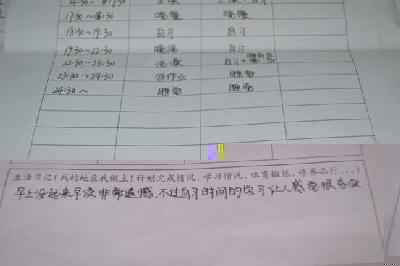 17:30~18:30 晚餐 晚餐
18:30~19:30 自习 自习
19:30~22:30 晚課 自习
22:30~23:30 洗澡 自习+
23:30~24:30 写作业 睡觉
24:30~ 睡觉 睡觉
生活日记(我的地盘我做主!计划完成情况、学习情况、体育锻炼、修养品行……)
早上没起来早读非常遗憾,不过自习时间的练习让人感觉很充实